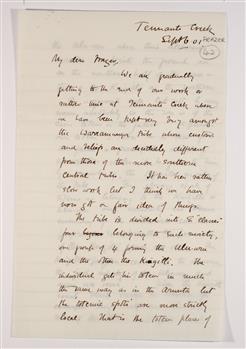 Tennants Creek
Sept 6 01
FRAZER
42
My dear Frazer,
We are gradually
getting to the end of our work or
rather time at Tennants Creek where
we have been kept very busy amongst
the Warramunga tribe whose customs
and beliefs are decidedly different
from those of the more southern
central tribes. It has been rather
slow work but I think we have
now got a fair idea of things.
The tribe is divided into 8 classes
four belonging to each moiety,
one group of 4 forming the Uluuru
and the other the Kingilli. The
individual gets his totem in much
the same way as in the Arunta but
the totemic spots are more strictly
local. That is the totem places of